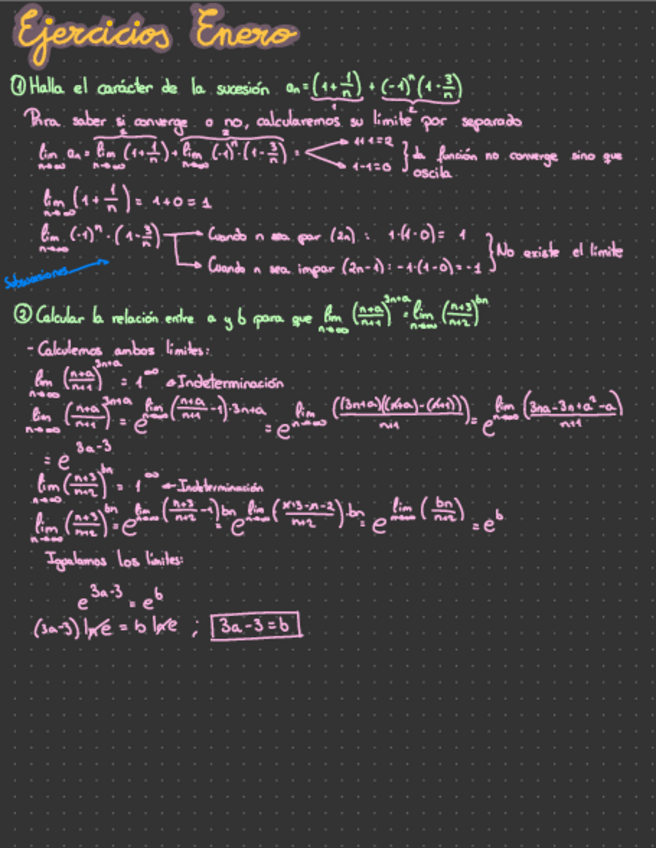 Ejercicios Enero
① Halla el carácter de la sucesión aₙ = (1+1/n) + (-1)ⁿ(1-3/n)
1 2
Para saber si converge o no, calcularemos su límite por separado
1 2
lim n→∞ aₙ = lim n→∞ (1+1/n) + lim n→∞ (-1)ⁿ·(1-3/n) = 1+1=2
1-1=0 } la función no converge sino que oscila
lim n→∞ (1+1/n) = 1+0 = 1
lim n→∞ (-1)ⁿ·(1-3/n) → Cuando n sea par (2n) : 1·(1-0) = 1
→ Cuando n sea impar (2n-1) : -1·(1-0) = -1 } No existe el límite
② Calcular la relación entre a y b para que lim n→∞ ((n+a)/(n+1))^(3n+a) = lim n→∞ ((n+3)/(n+2))^(bn)
- Calculemos ambos límites:
lim n→∞ ((n+a)/(n+1))^(3n+a) = 1^∞ → Indeterminación
lim n→∞ ((n+a)/(n+1))^(3n+a) = e^(lim n→∞ ((n+a)/(n+1) -1)·3n+a) = e^(lim n→∞ (((3n+a)((n+a)-(n+1)))/(n+1))) = e^(lim n→∞ ((3na-3n+a²-a)/(n+1)))
= e^(3a-3)
lim n→∞ ((n+3)/(n+2))^(bn) = 1^∞ ← Indeterminación
lim n→∞ ((n+3)/(n+2))^(bn) = e^(lim n→∞ ((n+3)/(n+2) -1)bn) = e^(lim n→∞ ((n+3-n-2)/(n+2))·bn) = e^(lim n→∞ (bn/(n+2))) = e^b
Igualamos los límites:
e^(3a-3) = e^b
(3a-3) lne = b lne ; 3a-3=b